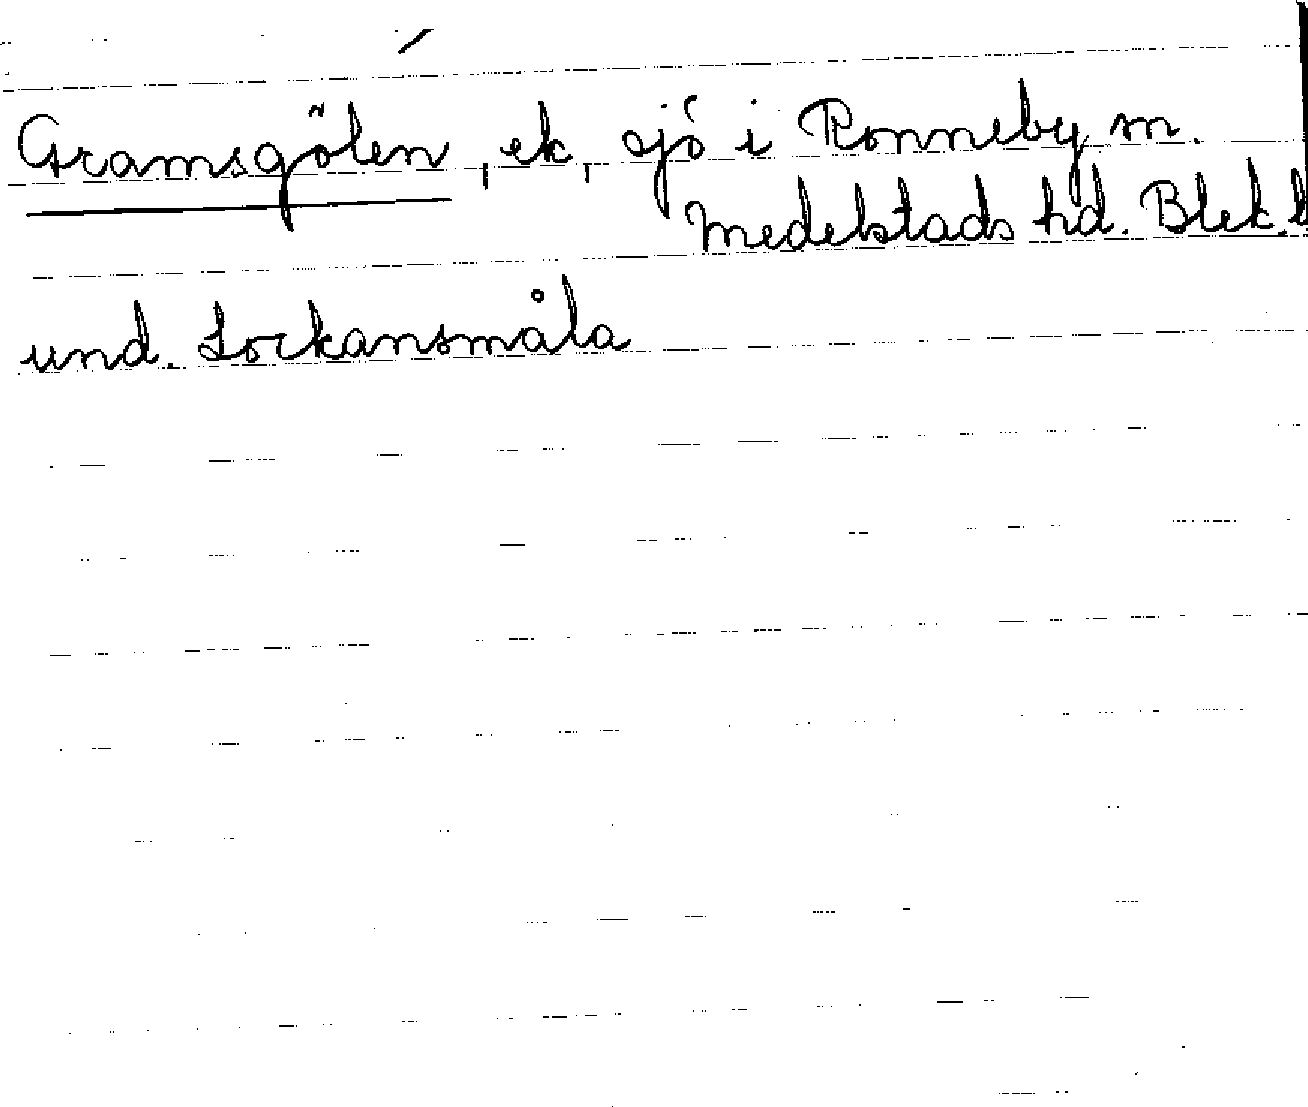 Gramsgölen, ek, sjö i Ronneby m.
Medelstads hd. Blek. l
und. Lockansmåla